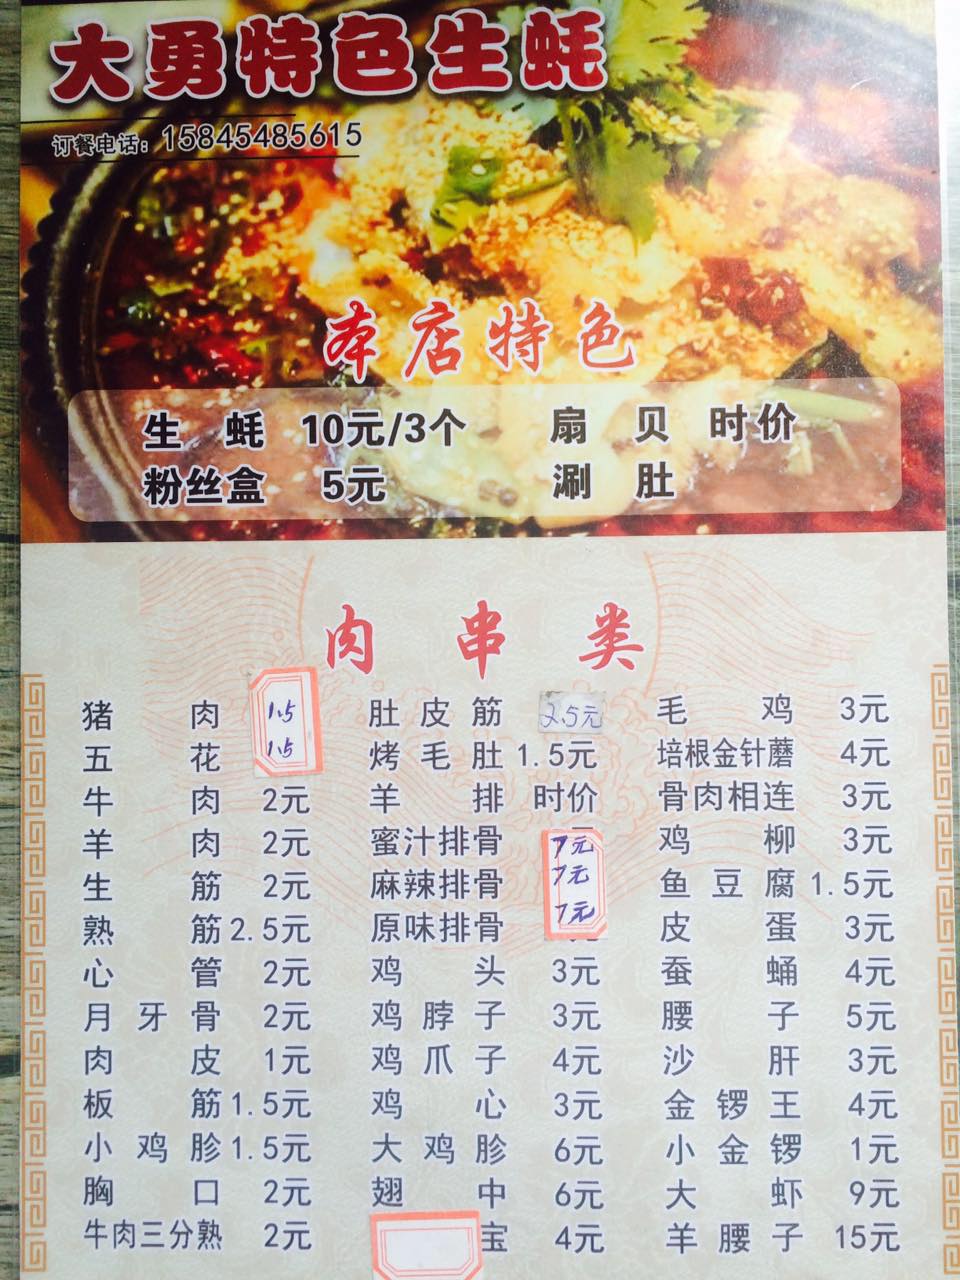 大勇特色生蚝
订餐电话：15845485615
本店特色
生蚝 10元/3个 扇贝 时价
粉丝盒 5元 涮肚
肉串类
猪肉 1.5 肚皮筋 2.5元 毛鸡 3元
五花 1.5 烤毛肚 1.5元 培根金针蘑 4元
牛肉 2元 羊排 时价 骨肉相连 3元
羊肉 2元 蜜汁排骨 7元 鸡柳 3元
生筋 2元 麻辣排骨 7元 鱼豆腐 1.5元
熟筋 2.5元 原味排骨 7元 皮蛋 3元
心管 2元 鸡头 3元 蚕蛹 4元
月牙骨 2元 鸡脖子 3元 腰子 5元
肉皮 1元 鸡爪子 4元 沙肝 3元
板筋 1.5元 鸡心 3元 金锣王 4元
小鸡胗 1.5元 大鸡胗 6元 小金锣 1元
胸口 2元 翅中 6元 大虾 9元
牛肉三分熟 2元 宝 4元 羊腰子 15元